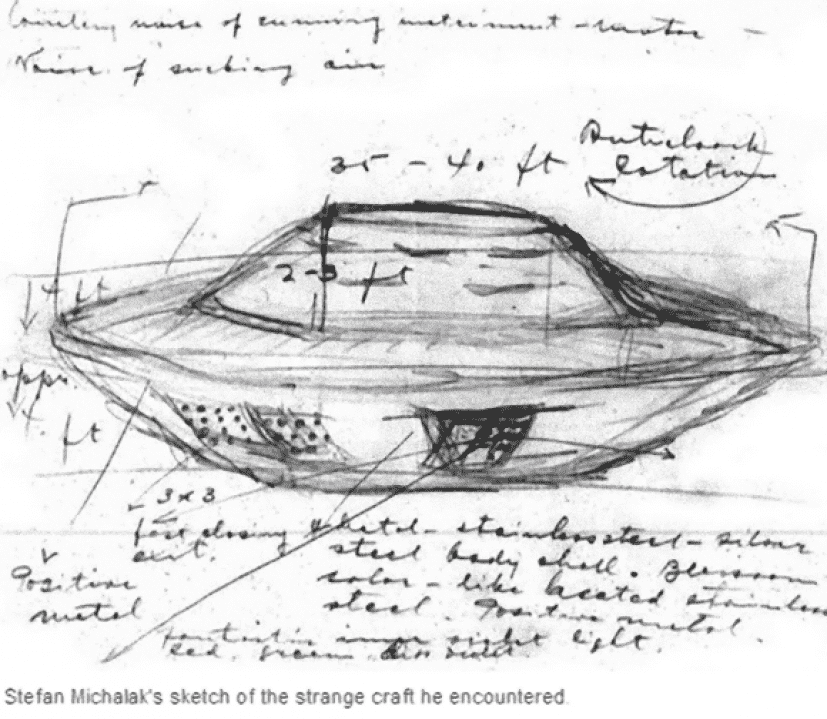 noise of instrument - motor -
Noise of sucking air
35 - 40 ft
Anticlock
rotation
2-3 ft
4 ft
appr.
4 ft
3x3
fast closing
exit.
Positive
metal
metal - stainless steel - silver
steel body shell.
color - like heated stainless
steel. Positive metal.
fantastic inner violet light.
red, green,
Stefan Michalak's sketch of the strange craft he encountered.